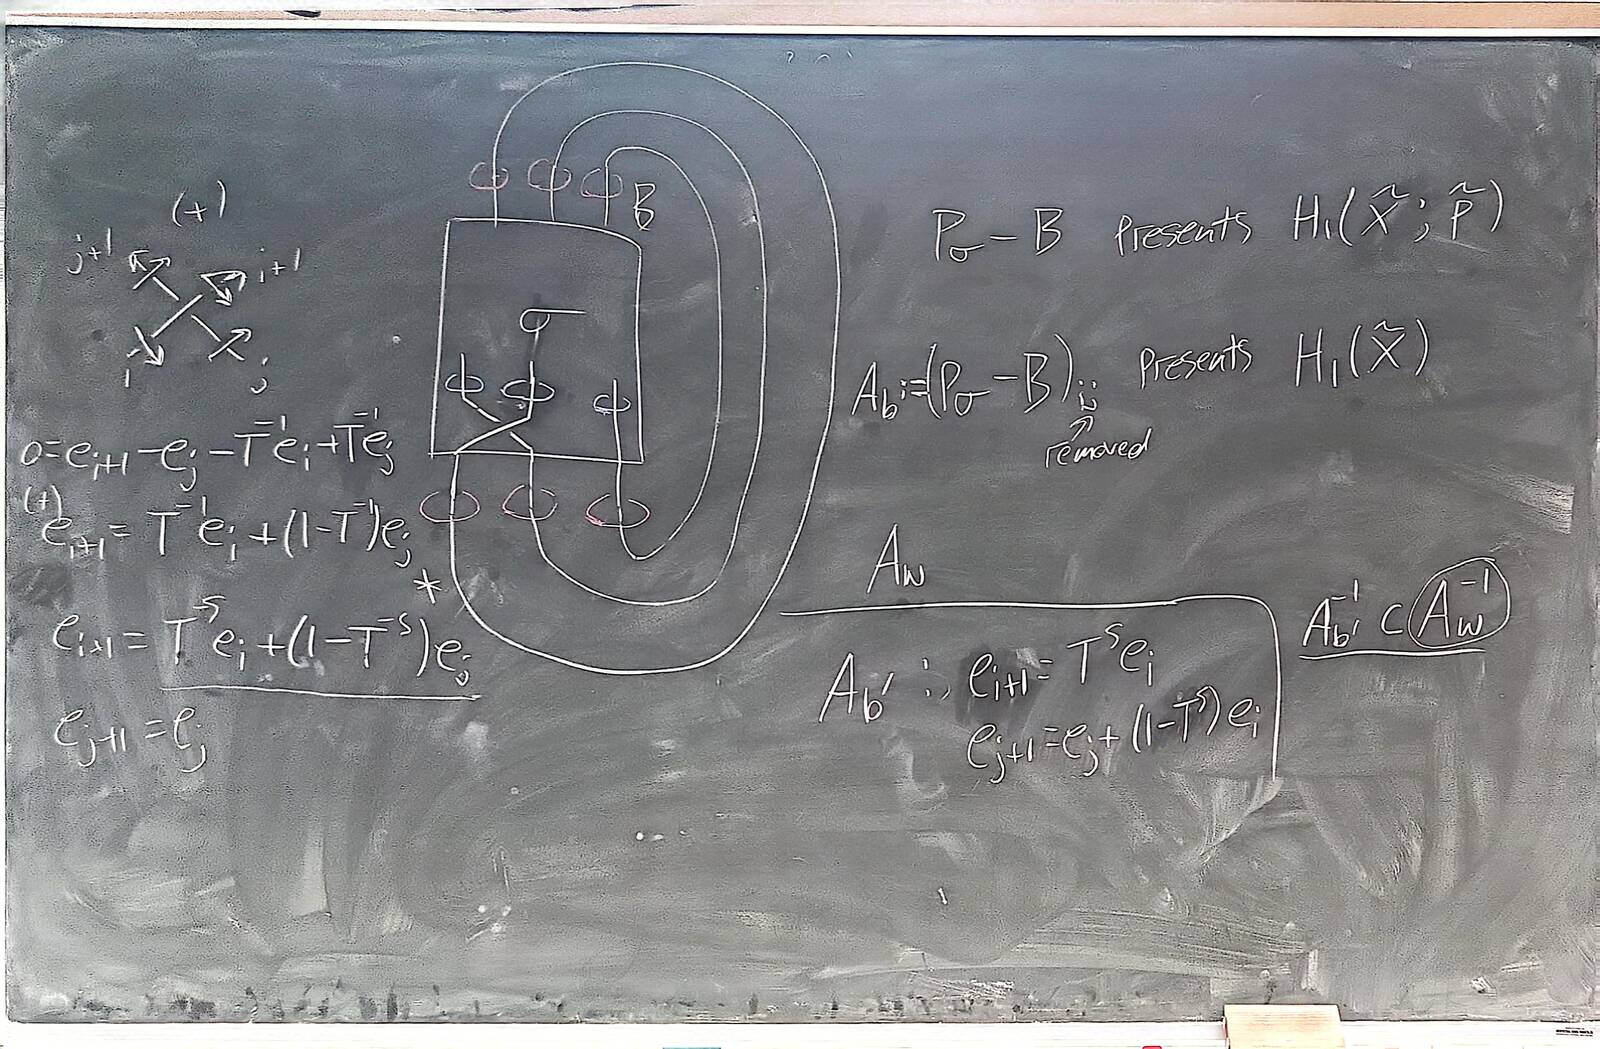 (+)
j+1 i+1
i j
0=e_{i+1}-e_j-T^{-1}e_i+T^{-1}e_j
(+)
e_{i+1}=T^{-1}e_i+(1-T^{-1})e_j
*
e_{i+1}=T^{-s}e_i+(1-T^{-s})e_j
e_{j+1}=e_j
B
σ
P_σ-B presents H_1(X̃; p̃)
A_b:=(P_σ-B)_{ij} presents H_1(X̃)
removed
A_w
A_{b'}: e_{i+1}=T^s e_i
e_{j+1}=e_j+(1-T^s)e_i
A_{b'}^{-1} ⊂ A_w^{-1}